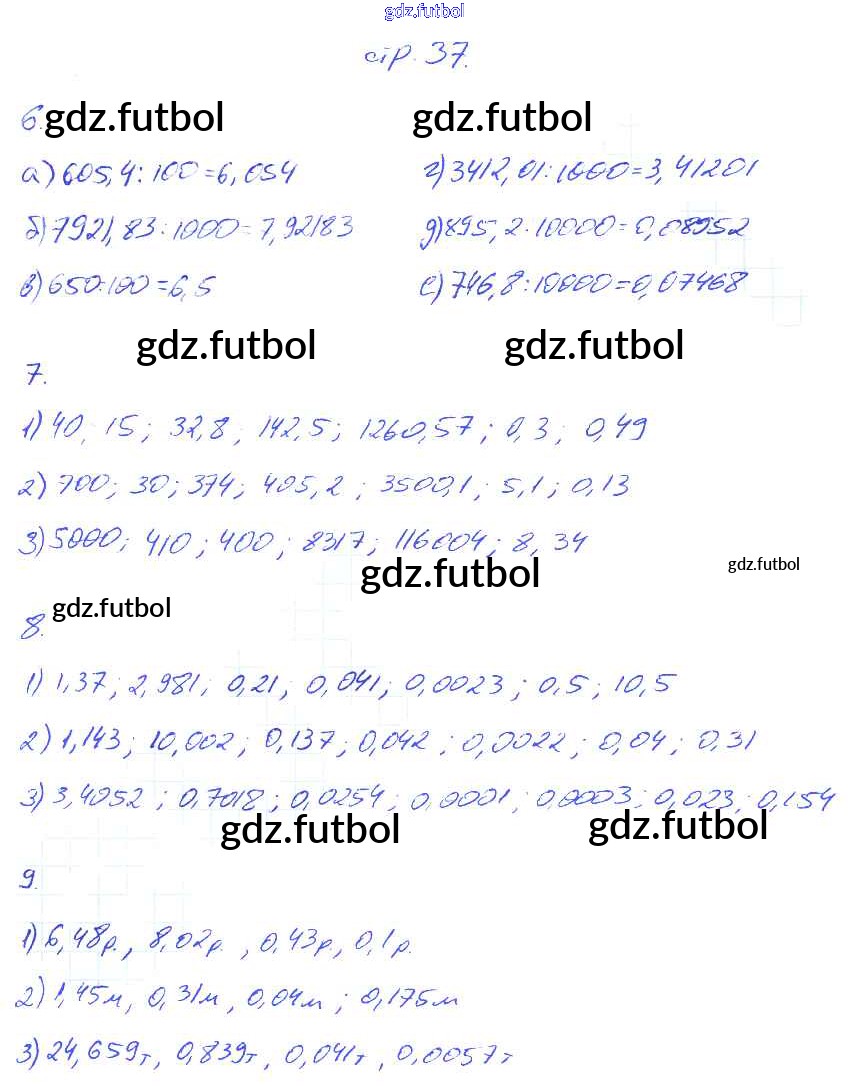 gdz.futbol
стр. 37.
6. gdz.futbol gdz.futbol
а) 605,4 : 100 = 6,054 г) 3412,01 : 1000 = 3,41201
б) 7921,83 : 1000 = 7,92183 д) 895,2 : 10000 = 0,08952
в) 650 : 100 = 6,5 е) 746,8 : 10000 = 0,07468
gdz.futbol gdz.futbol
7.
1) 40; 15; 32,8; 142,5; 1260,57; 0,3; 0,49
2) 700; 30; 374; 405,2; 3500,1; 5,1; 0,13
3) 5000; 410; 400; 8317; 116004; 8,34
gdz.futbol gdz.futbol
8. gdz.futbol
1) 1,37; 2,981; 0,21; 0,041; 0,0023; 0,5; 10,5
2) 1,143; 10,002; 0,137; 0,042; 0,0022; 0,04; 0,31
3) 3,4052; 0,7018; 0,0254; 0,0001; 0,0003; 0,023; 0,154
gdz.futbol gdz.futbol
9.
1) 6,48р., 8,02р., 0,43р., 0,1р.
2) 1,45м, 0,31м, 0,04м; 0,175м
3) 24,659т, 0,839т, 0,041т, 0,0057т